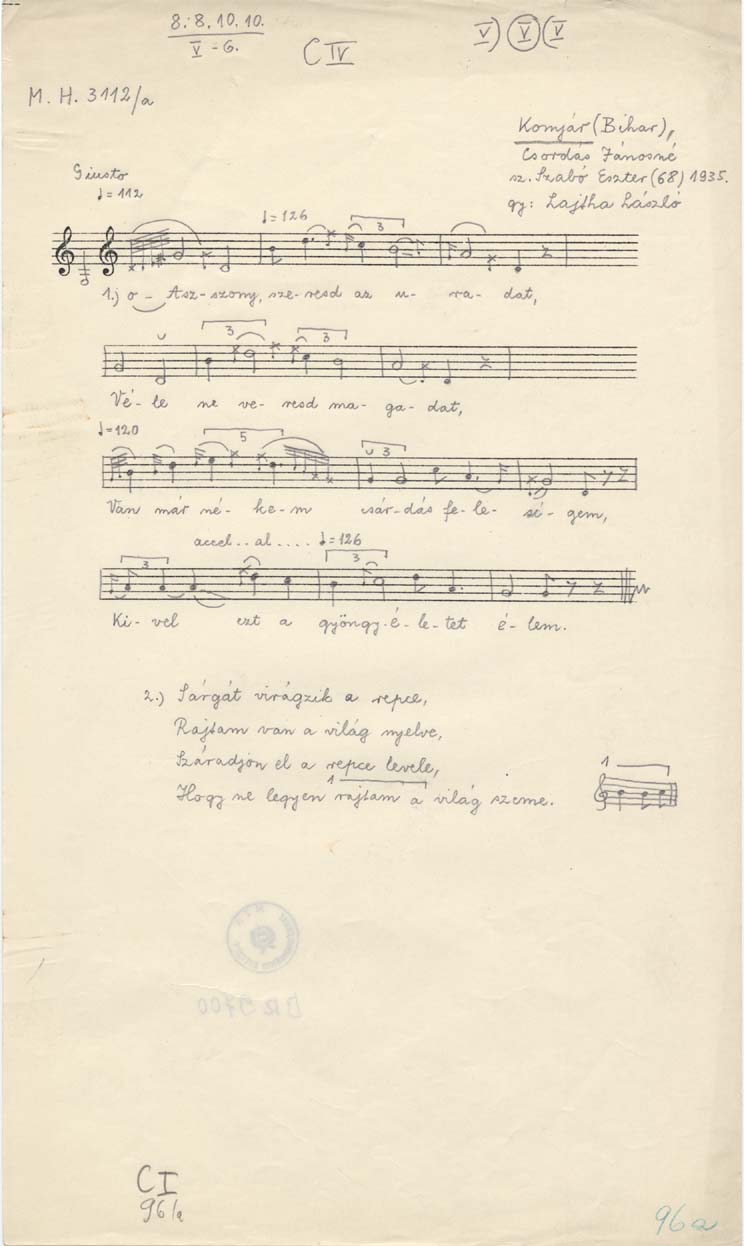 8. 8. 10. 10.
V - 6.
C IV
V) V (V
M. H. 3112/a
Komjár (Bihar),
Csordás Jánosné
sz. Szabó Eszter (68) 1935.
gy: Lajtha László
Giusto
♩= 112
♩= 126
3
1.) o - Asz-szony, sze-resd az u- ra- dat,
3 3
Vé- le ne ve- resd ma- ga- dat,
♩= 120
5 3
Van már né- ke- m csár-dás fe- le- sé- gem,
accel.. al.... ♩= 126
3 3
Ki- vel ezt a gyöngy-é- le- tet é- lem.
2.) Sárgát virágzik a repce,
Rajtam van a világ nyelve,
Száradjon el a repce levele,
1
1
Hogy ne legyen rajtam a világ szeme.
C I
96/a
96a